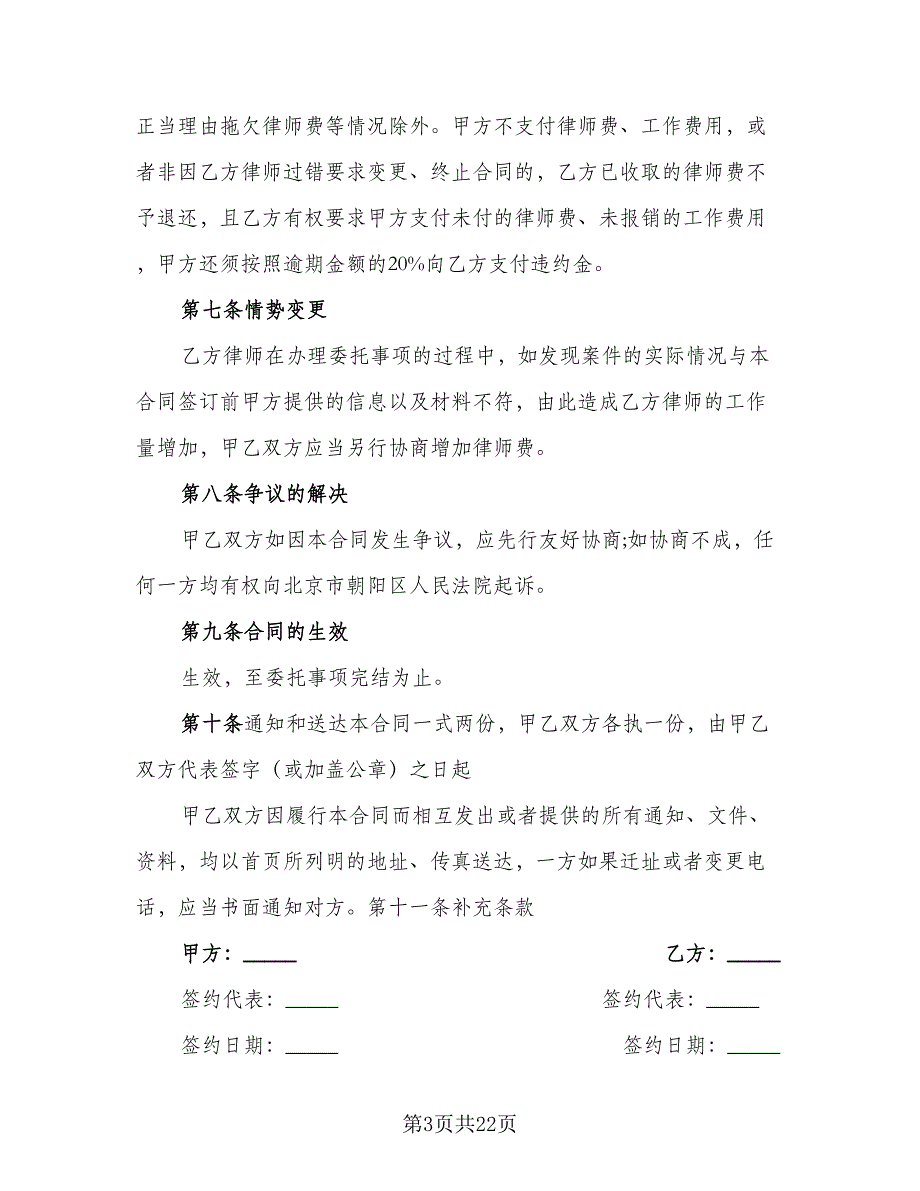 正当理由拖欠律师费等情况除外。甲方不支付律师费、工作费用，或
者非因乙方律师过错要求变更、终止合同的，乙方已收取的律师费不
予退还，且乙方有权要求甲方支付未付的律师费、未报销的工作费用
，甲方还须按照逾期金额的20%向乙方支付违约金。
第七条情势变更
乙方律师在办理委托事项的过程中，如发现案件的实际情况与本
合同签订前甲方提供的信息以及材料不符，由此造成乙方律师的工作
量增加，甲乙双方应当另行协商增加律师费。
第八条争议的解决
甲乙双方如因本合同发生争议，应先行友好协商;如协商不成，任
何一方均有权向北京市朝阳区人民法院起诉。
第九条合同的生效
生效，至委托事项完结为止。
第十条通知和送达本合同一式两份，甲乙双方各执一份，由甲乙
双方代表签字（或加盖公章）之日起
甲乙双方因履行本合同而相互发出或者提供的所有通知、文件、
资料，均以首页所列明的地址、传真送达，一方如果迁址或者变更电
话，应当书面通知对方。第十一条补充条款
甲方：_____ 乙方：_____
签约代表：_____ 签约代表：_____
签约日期：_____ 签约日期：_____
第3页共22页